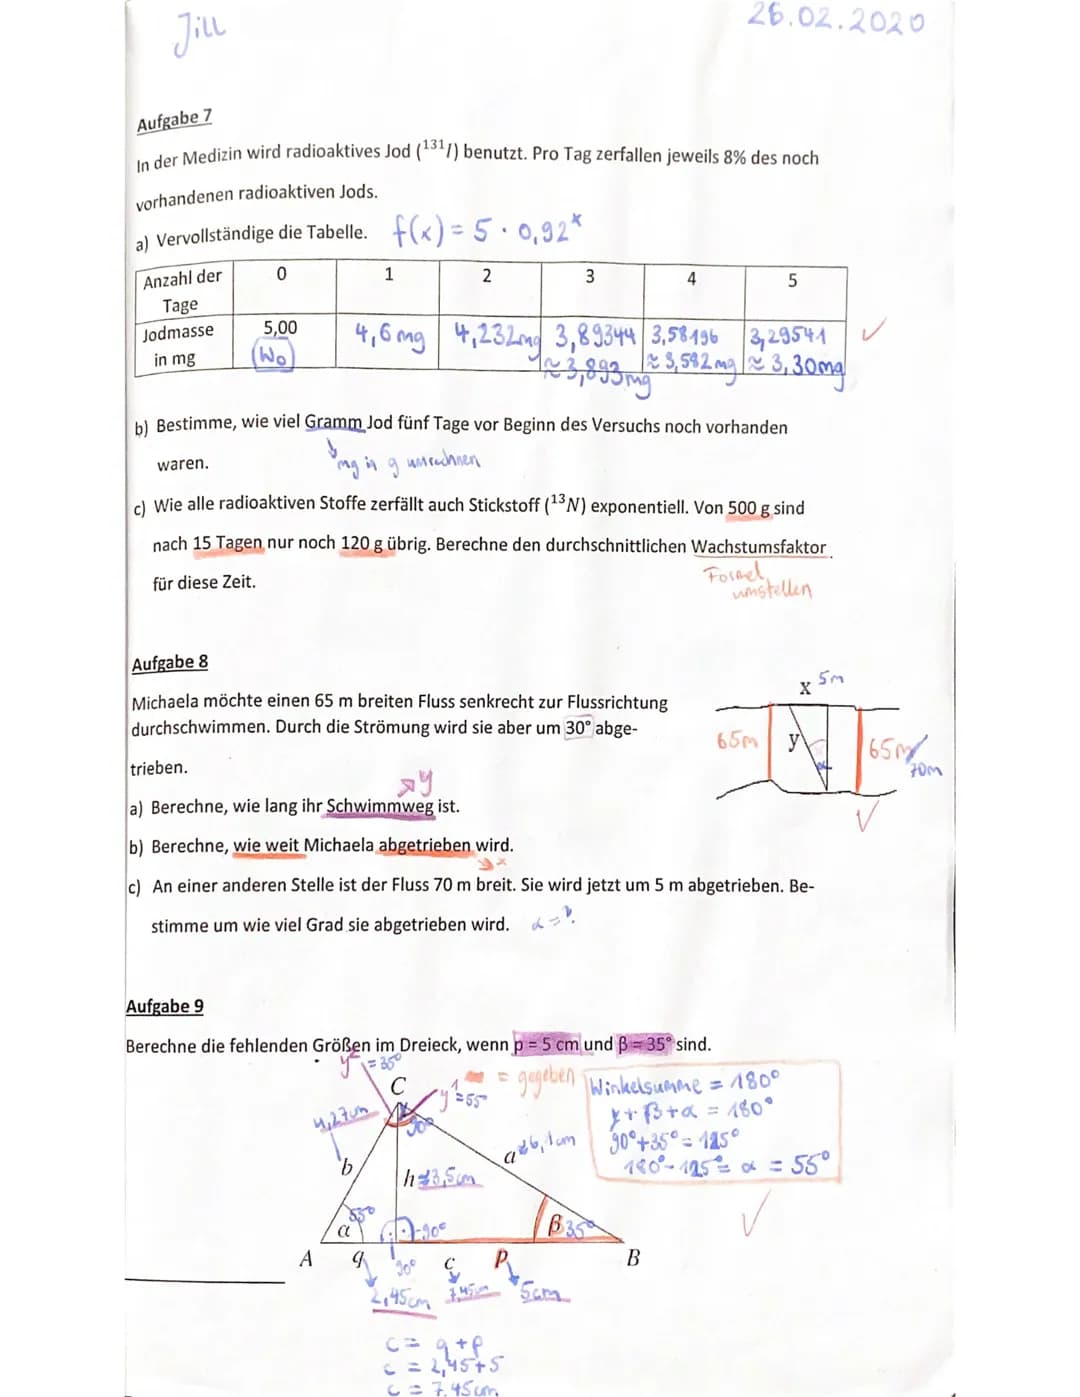 Jill
26.02.2020
Aufgabe 7
In der Medizin wird radioaktives Jod (¹³¹I) benutzt. Pro Tag zerfallen jeweils 8% des noch
vorhandenen radioaktiven Jods.
a) Vervollständige die Tabelle. f(x) = 5 · 0,92ˣ
Anzahl der Tage 0 1 2 3 4 5
Jodmasse in mg 5,00 4,6 mg 4,232mg 3,89344 3,58196 3,29541 ✓
(W₀) ≈ 3,893mg ≈ 3,582 mg ≈ 3,30mg
b) Bestimme, wie viel Gramm Jod fünf Tage vor Beginn des Versuchs noch vorhanden
waren.
mg in g umrechnen
c) Wie alle radioaktiven Stoffe zerfällt auch Stickstoff (¹³N) exponentiell. Von 500 g sind
nach 15 Tagen nur noch 120 g übrig. Berechne den durchschnittlichen Wachstumsfaktor
für diese Zeit.
Formel
umstellen
Aufgabe 8
Michaela möchte einen 65 m breiten Fluss senkrecht zur Flussrichtung
durchschwimmen. Durch die Strömung wird sie aber um 30° abge-
trieben.
x 5m
65m y α 65m
70m
✓
y
a) Berechne, wie lang ihr Schwimmweg ist.
b) Berechne, wie weit Michaela abgetrieben wird.
x
c) An einer anderen Stelle ist der Fluss 70 m breit. Sie wird jetzt um 5 m abgetrieben. Be-
stimme um wie viel Grad sie abgetrieben wird. α = ?
Aufgabe 9
Berechne die fehlenden Größen im Dreieck, wenn p = 5 cm und β = 35° sind.
γ² = 35°
C
γ¹ = 55°
= gegeben
Winkelsumme = 180°
γ + β + α = 180°
90° + 35° = 125°
180° - 125° = α = 55°
✓
4,27cm
90°
a ≈ 6,1cm
b
h ≈ 3,5cm
55°
α
= 90°
β 35°
A q 90° c p B
2,45cm 7,45cm 5cm
c = q + p
c = 2,45 + 5
c = 7,45cm